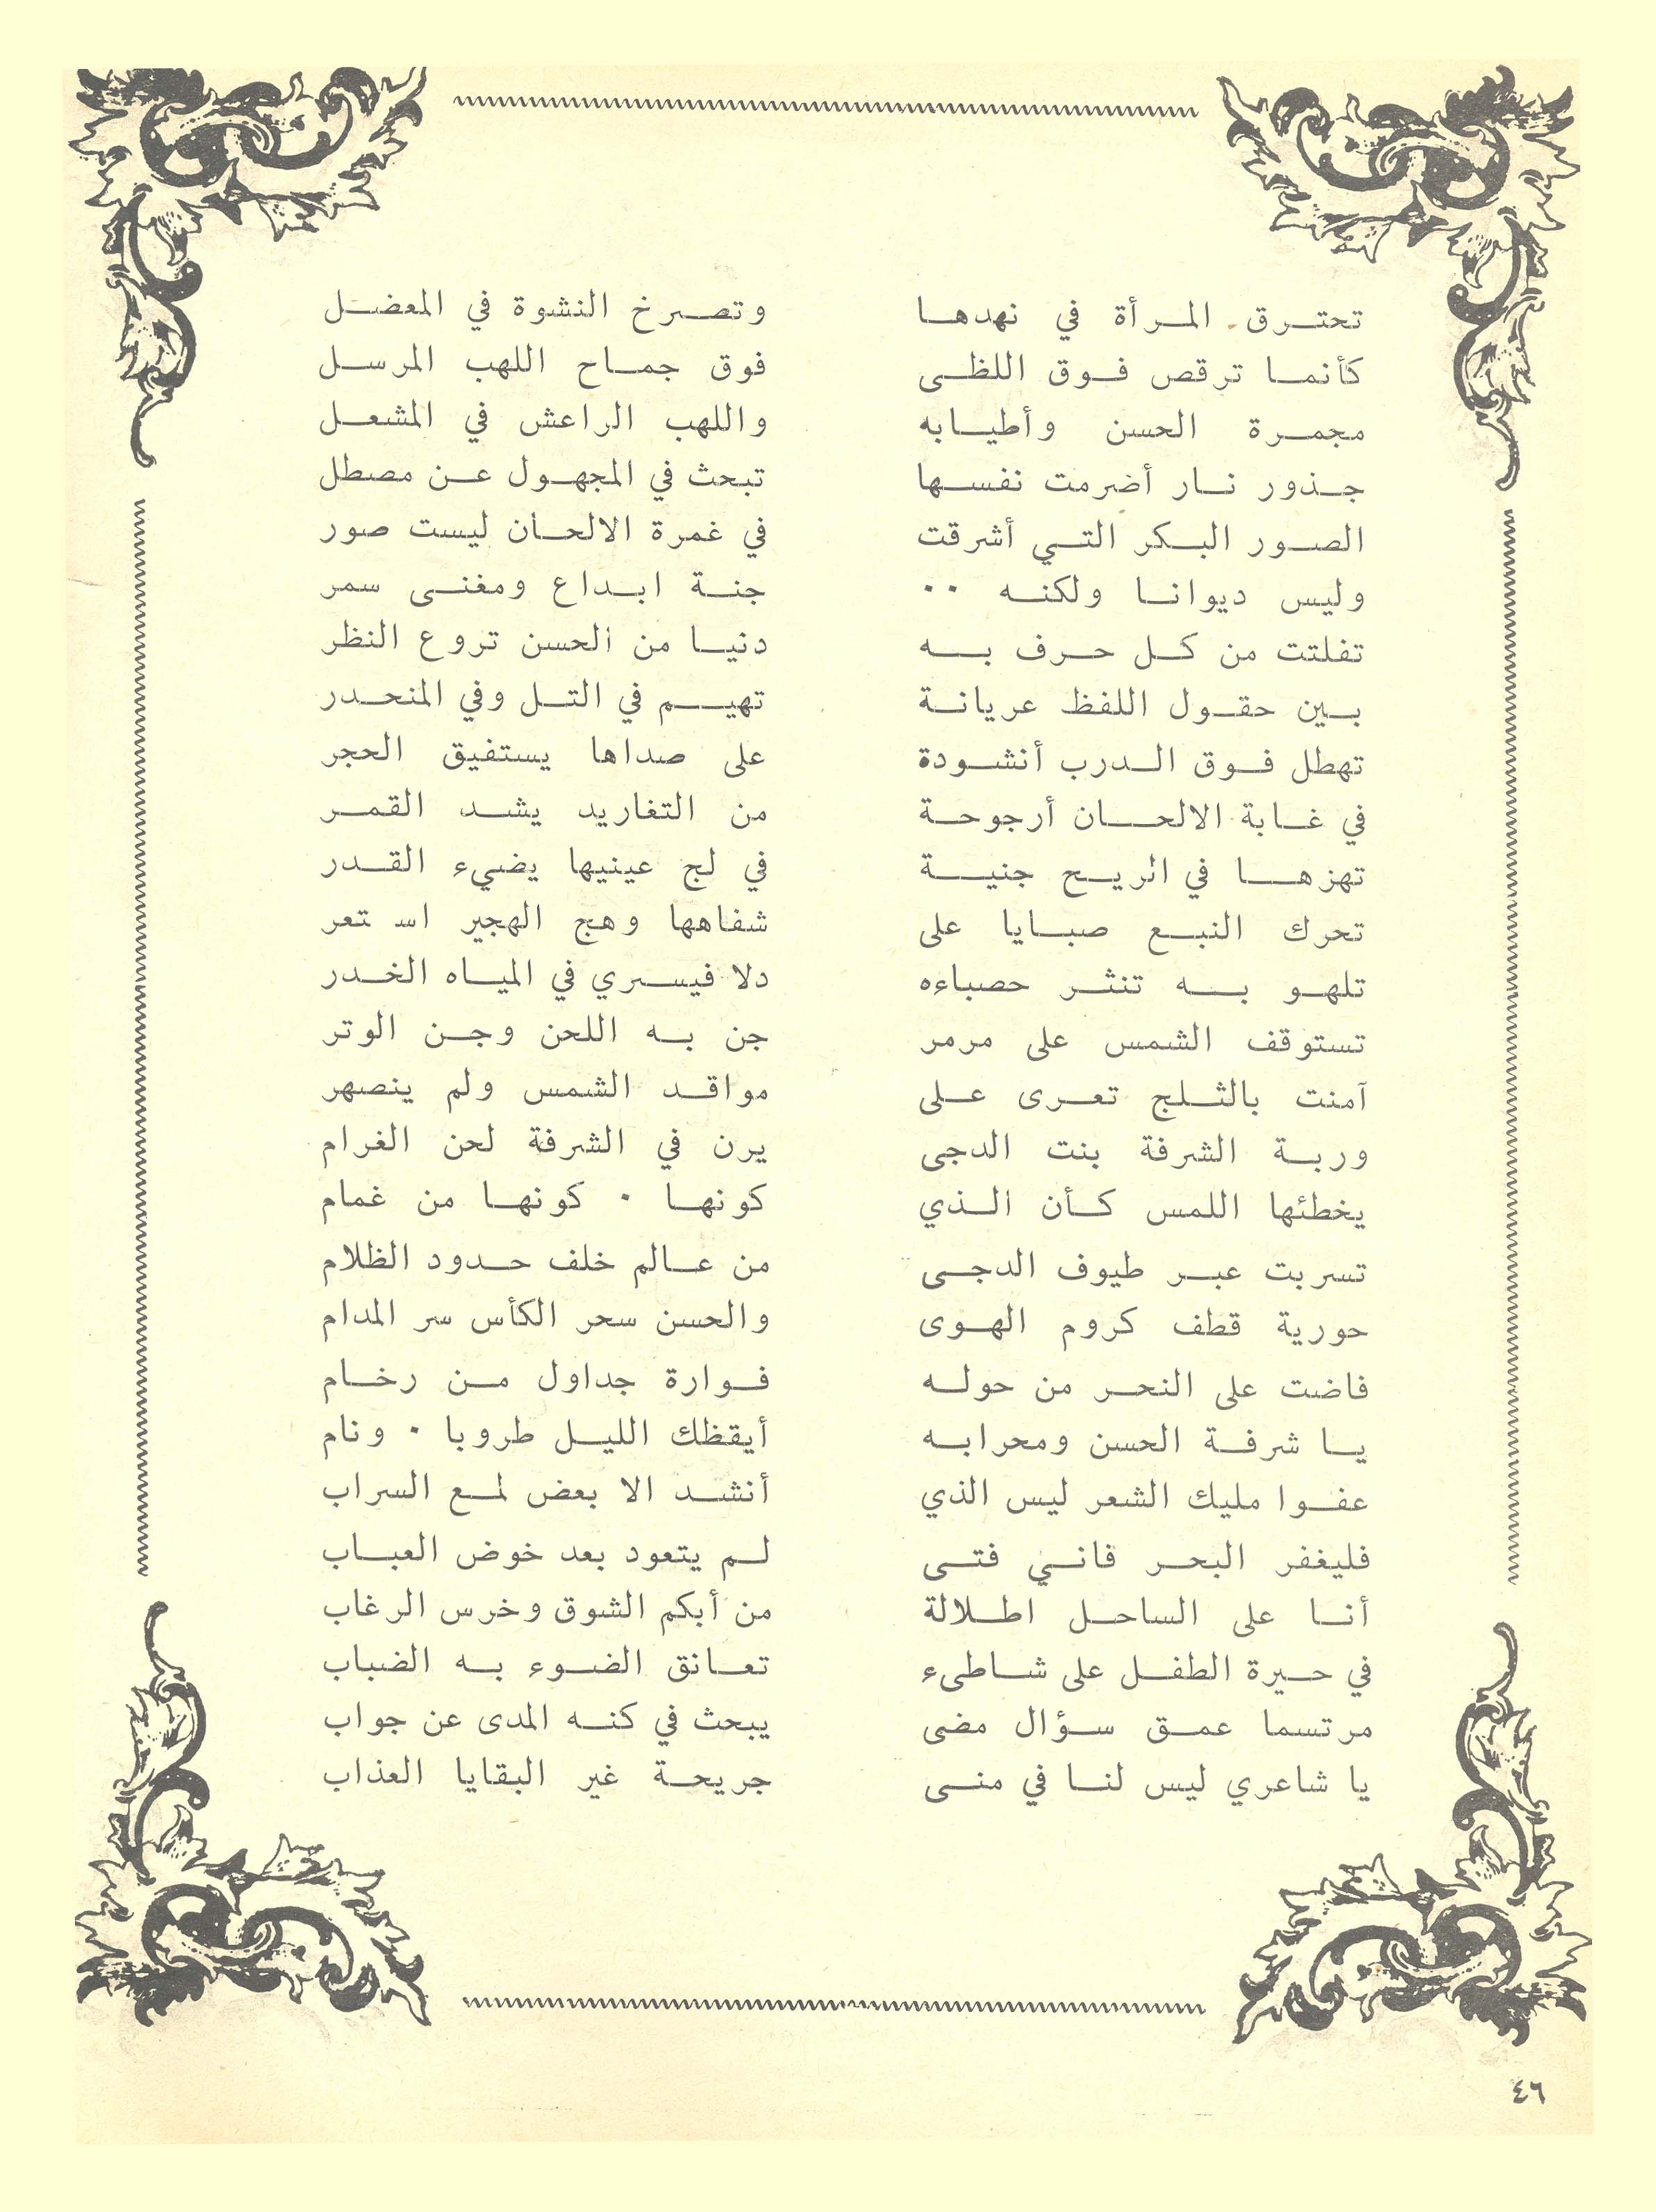 تحترق المرأة في نهدها وتصرخ النشوة في المعضل
كأنما ترقص فوق اللظى فوق جماح اللهب المرسل
مجمرة الحسن وأطيابه واللهب الراعش في المشعل
جذور نار أضرمت نفسها تبحث في المجهول عن مصطل
الصور البكر التي أشرقت في غمرة الالحان ليست صور
وليس ديوانا ولكنه ٠٠ جنة ابداع ومغنى سمر
تفلتت من كل حرف به دنيا من الحسن تروع النظر
بين حقول اللفظ عريانة تهيم في التل وفي المنحدر
تهطل فوق الدرب أنشودة على صداها يستفيق الحجر
في غابة الالحان أرجوحة من التغاريد يشد القمر
تهزها في الريح جنية في لج عينيها يضيء القدر
تحرك النبع صبايا على شفاهها وهج الهجير استعر
تلهو به تنثر حصباءه دلا فيسري في المياه الخدر
تستوقف الشمس على مرمر جن به اللحن وجن الوتر
آمنت بالثلج تعرى على مواقد الشمس ولم ينصهر
وربة الشرفة بنت الدجى يرن في الشرفة لحن الغرام
يخطئها اللمس كأن الذي كونها ٠ كونها من غمام
تسربت عبر طيوف الدجى من عالم خلف حدود الظلام
حورية قطف كروم الهوى والحسن سحر الكأس سر المدام
فاضت على النحر من حوله فوارة جداول من رخام
يا شرفة الحسن ومحرابه أيقظك الليل طروبا ٠ ونام
عفوا مليك الشعر ليس الذي أنشد الا بعض لمع السراب
فليغفر البحر فاني فتى لم يتعود بعد خوض العباب
أنا على الساحل اطلالة من أبكم الشوق وخرس الرغاب
في حيرة الطفل على شاطىء تعانق الضوء به الضباب
مرتسما عمق سؤال مضى يبحث في كنه المدى عن جواب
يا شاعري ليس لنا في منى جريحة غير البقايا العذاب
٤٦